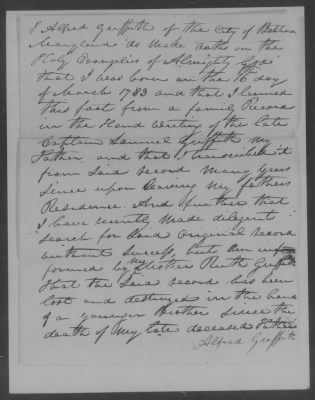 I Alfred Griffith of the City of Baltimore
Maryland do make oaths on the
Holy Evangelies of Almighty God
that I was born on the 16 day
of March 1783 and that I learned
this fact from a family Record
in the Hand writing of the late
Captain Samuel Griffith my
Father, and that I transcribed it
from said record many years
since upon leaving my fathers
Residence. And further that
I have recently made diligent
search for said original record
without success, but am in
formed by my Mother Ruth Griffith
that the said record has been
lost and destroyed in the hands
of a younger Brother since the
death of my late deceased Father
Alfred Griffith